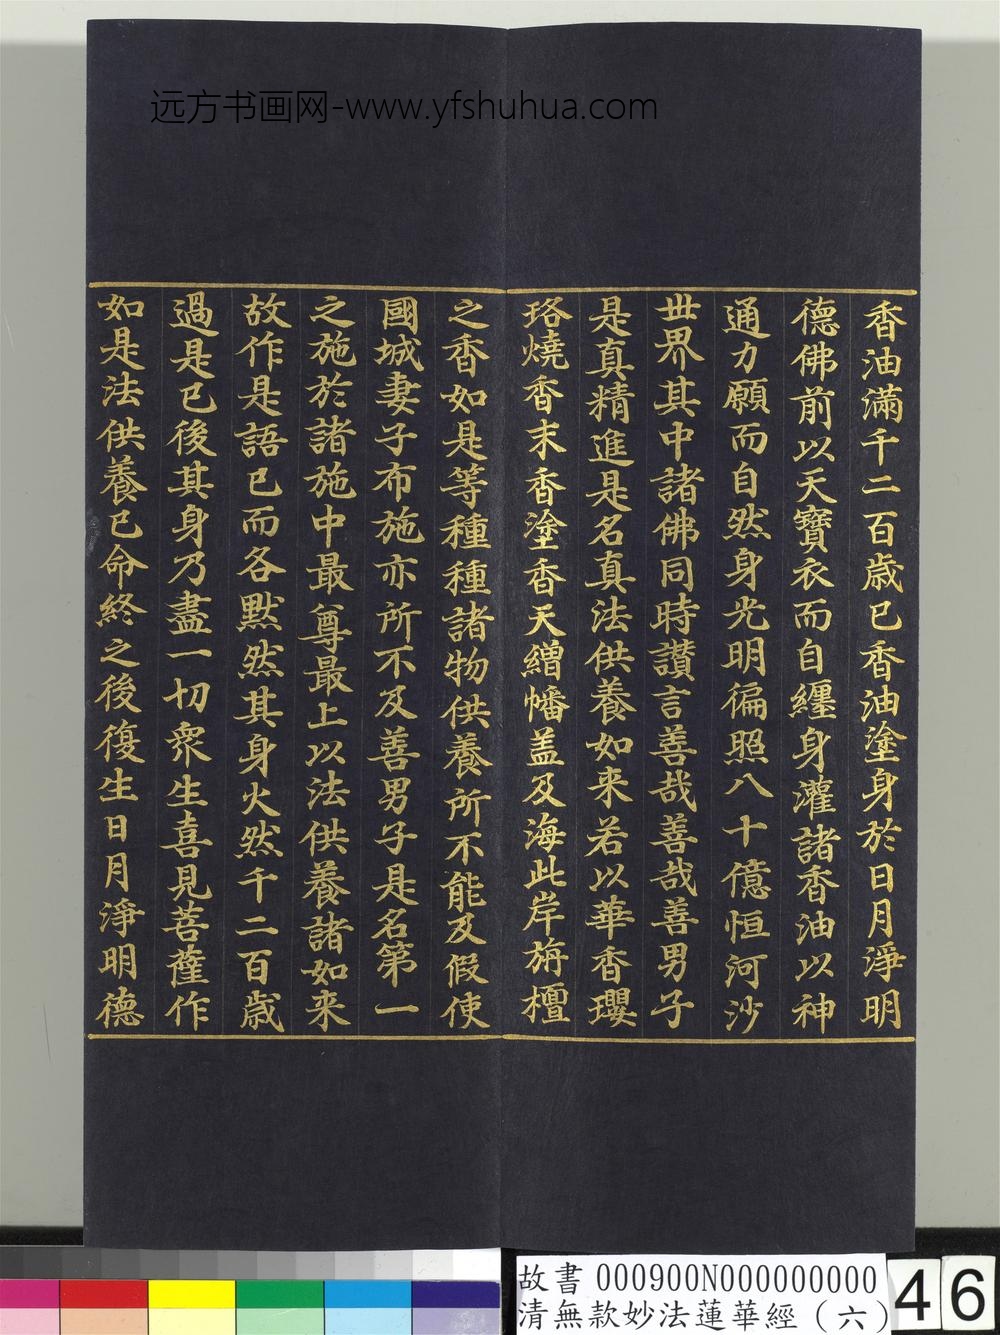 远方书画网-www.yfshuhua.com
香油滿千二百歲已香油塗身於日月淨明
德佛前以天寶衣而自纏身灌諸香油以神
通力願而自然身光明徧照八十億恒河沙
世界其中諸佛同時讚言善哉善哉善男子
是真精進是名真法供養如来若以華香瓔
珞燒香末香塗香天繒幡盖及海此岸旃檀
之香如是等種種諸物供養所不能及假使
國城妻子布施亦所不及善男子是名第一
之施於諸施中最尊最上以法供養諸如来
故作是語已而各默然其身火然千二百歲
過是已後其身乃盡一切眾生喜見菩薩作
如是法供養已命終之後復生日月淨明德
故書 000900N000000000
清無款妙法蓮華經（六）
46